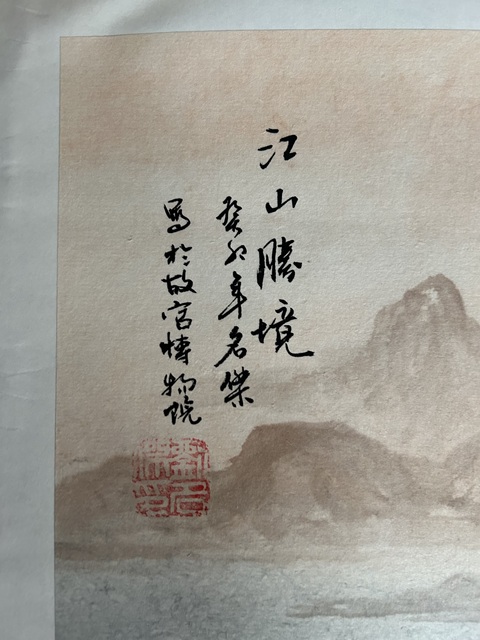 江山勝境
癸卯年名傑
寫於故宮博物院